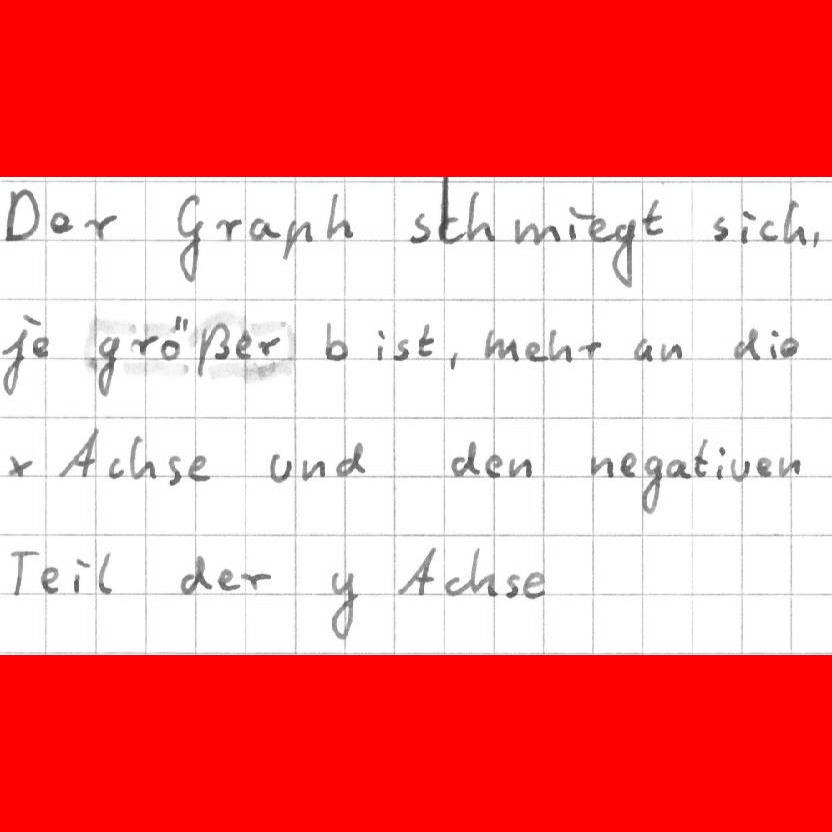 Der Graph schmiegt sich,
je größer b ist, mehr an die
x Achse und den negativen
Teil der y Achse